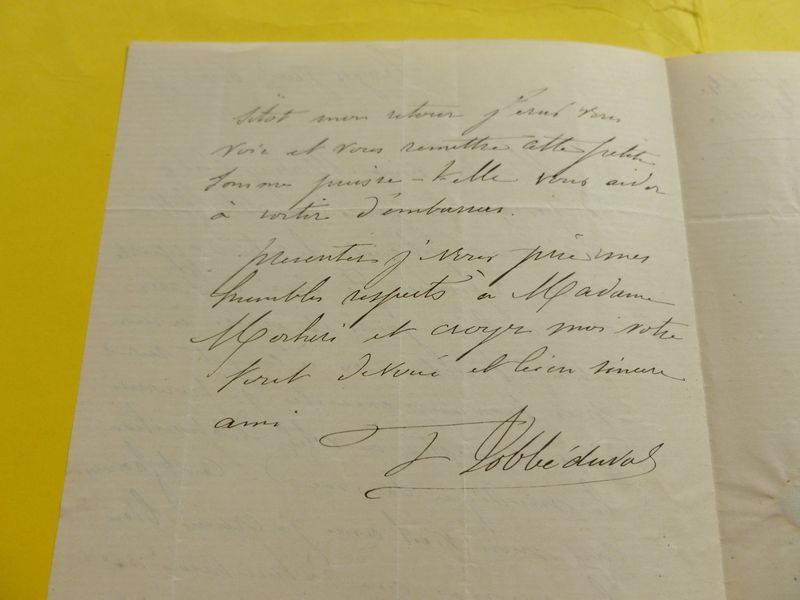 sitôt mon retour j'irai vous
voir et vous remettre cette petite
somme puisse-t-elle vous aider
à sortir d'embarras.
presentez je vous prie mes
humbles respects à Madame
et croyez moi votre
tout dévoué et bien sincère
ami